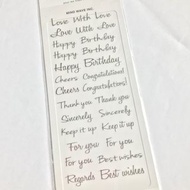 Love With Love
Love With Love
Happy Birthday
Happy Birthday
Happy Birthday
Cheers Congratulations!
Cheers Congratulations!
Thank you Thank you
Sincerely Sincerely
Keep it up Keep it up
For you For you
For you Best wishes
Regards Best wishes